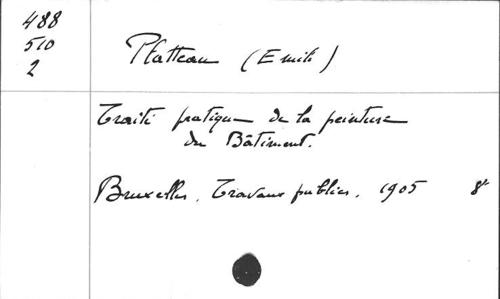 488
510
2
Platteau (Emile)
Traité pratique de la peinture
du Bâtiment.
Bruxelles, Travaux publics, 1905 8°